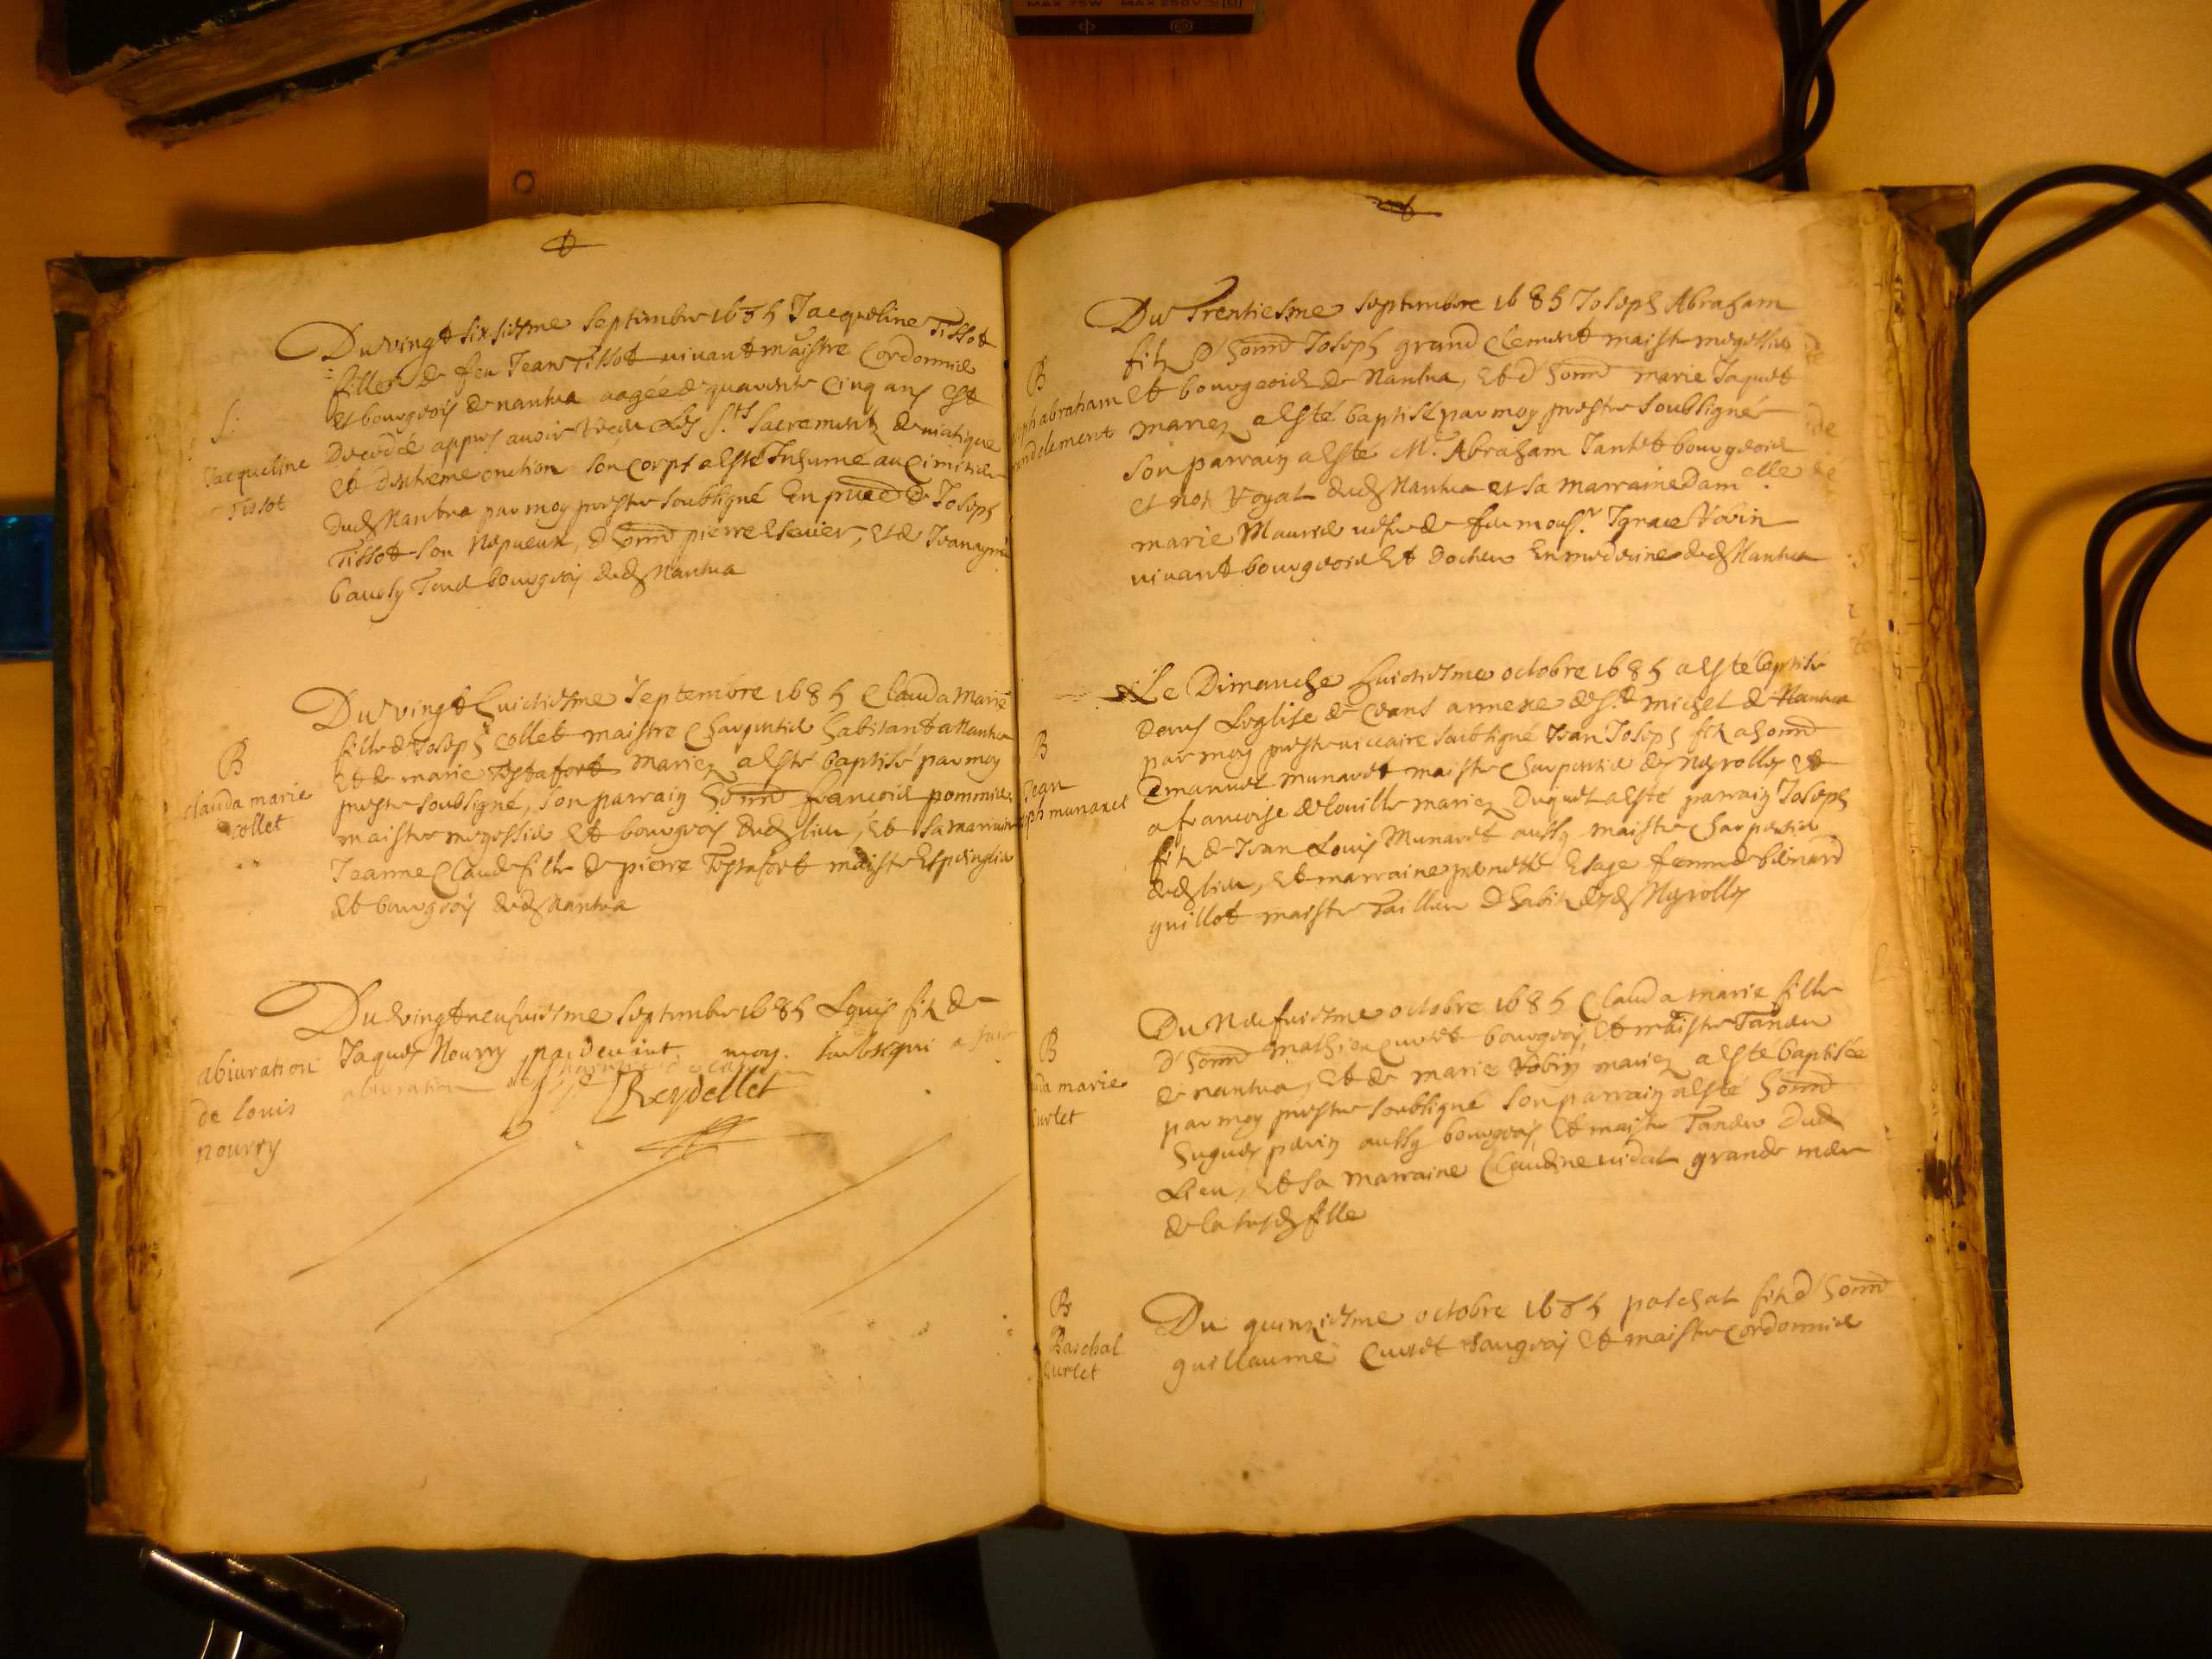 MAX 75W MAX 250V
S.
Jacqueline
Tissot
Du vingt sixsiesme septembre 1685 Jacqueline Tissot
fille de feu Jean Tissot vivant maistre Cordonnie
et bourgeois de nantua aagée de quarente cinq ans est
Decedée appres avoir receu Les S.ts Sacrements de viatique
et dextreme onction son corps a esté Inhumé au Cimitiere
dud Nantua par moy prestre soubsigné En pnce de Joseph
Tissot son Nepveux, d honn pierre et de
bourgeois dud Nantua
B
clauda marie
collet
Du vingt huictiesme Septembre 1685 Clauda Marie
fille de Joseph collet maistre Charpentie habitant a Nantua
et de marie Testafort mariez a esté baptisé par moy
prestre soubsigné, son parrain honn francois pommier
maistre megissie et bourgeois dud lieu, et sa marraine
Jeanne Claude fille de pierre Testafort maistre Espinglie
et bourgeois dud Nantua
abiuration
de louis
nourry
Du vingt neufviesme septembre 1685 Louis filz de
Jaques Nourry pardevant moy soubsigné a fait
abiuration
Reydellet
B
ph abraham
nd clement
Du Trentiesme septembre 1685 Joseph Abraham
filz d'honn Joseph grand Clement maistre megissie
et bourgeois de Nantua, et d honn marie Jaquet
mariez a esté baptisé par moy prestre soubsigné
son parrain a esté M.e Abraham Jantet bourgeois
et not Royal dud Nantua et sa marraine Dam.elle
marie Maurie vefve de feu mons.r Ignace Robin
vivant bourgeois et Docteur En medecine dud Nantua
B
Jean
ph munaret
Le Dimanche huictiesme octobre 1685 a esté baptisé
dans Leglise de annexe de S.t michel de Nantua
par moy prestre viccaire soubsigné Jean Joseph filz a honn
Emanuel munaret maistre Charpentie des Neyrolles et
a francoise delouille mariez Duquel a esté parrain Joseph
filz de Jean Louis Munaret aussy maistre Charpentie
dud lieu, et marraine femme de Bernard
guillot maistre Tailleur d habitz desd Neyrolles
B
da marie
Curtet
Du Neufviesme octobre 1685 Clauda marie fille
d'honn mathieu Curtet bourgeois, et maistre Taneur
de nantua, et de marie Robin mariez a esté baptisée
par moy prestre soubsigné son parrain a esté honn
hugues perrin aussy bourgeois, et maistre Taneur dud
Lieu, et sa marraine Claudine vidal grande mere
de la susd fille
B
Paschal
Curtet
Du quinziesme octobre 1685 paschal filz d'honn
guillaume Curtet bourgeois et maistre cordonnie